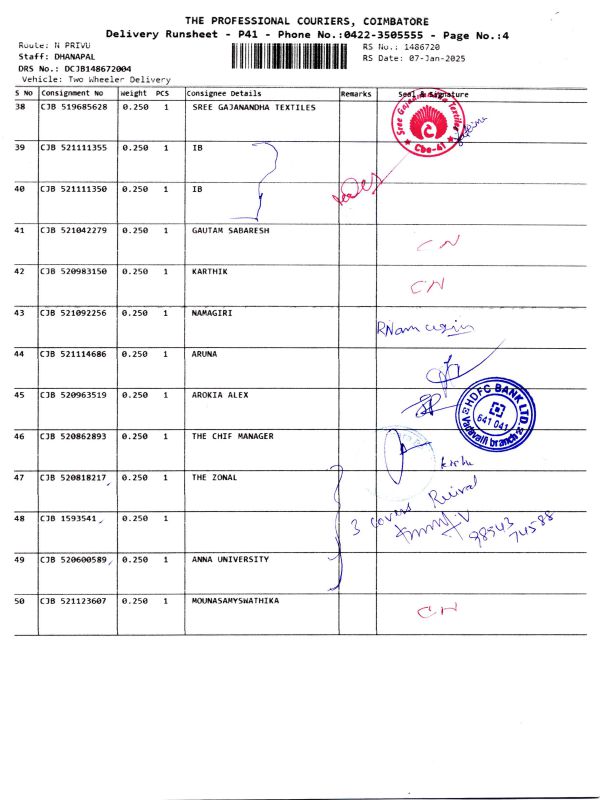 THE PROFESSIONAL COURIERS, COIMBATORE
Delivery Runsheet - P41 - Phone No.:0422-3505555 - Page No.:4
Route: N PRIVU
RS No.: 1486720
Staff: DHANAPAL
RS Date: 07-Jan-2025
DRS No.: DCJB148672004
Vehicle: Two Wheeler Delivery
S NO Consignment No Weight PCS Consignee Details Remarks Seal & Signature
38 CJB 519685628 0.250 1 SREE GAJANANDHA TEXTILES
Cbe-41
39 CJB 521111355 0.250 1 IB
40 CJB 521111350 0.250 1 IB
41 CJB 521042279 0.250 1 GAUTAM SABARESH CN
42 CJB 520983150 0.250 1 KARTHIK CN
43 CJB 521092256 0.250 1 NAMAGIRI
44 CJB 521114686 0.250 1 ARUNA
45 CJB 520963519 0.250 1 AROKIA ALEX
HDFC BANK LTD.
641 041
Vadavalli branch
46 CJB 520862893 0.250 1 THE CHIF MANAGER
47 CJB 520818217 0.250 1 THE ZONAL
48 CJB 1593541 0.250 1
3 covers
98543
74588
49 CJB 520600589 0.250 1 ANNA UNIVERSITY
50 CJB 521123607 0.250 1 MOUNASAMYSWATHIKA CN